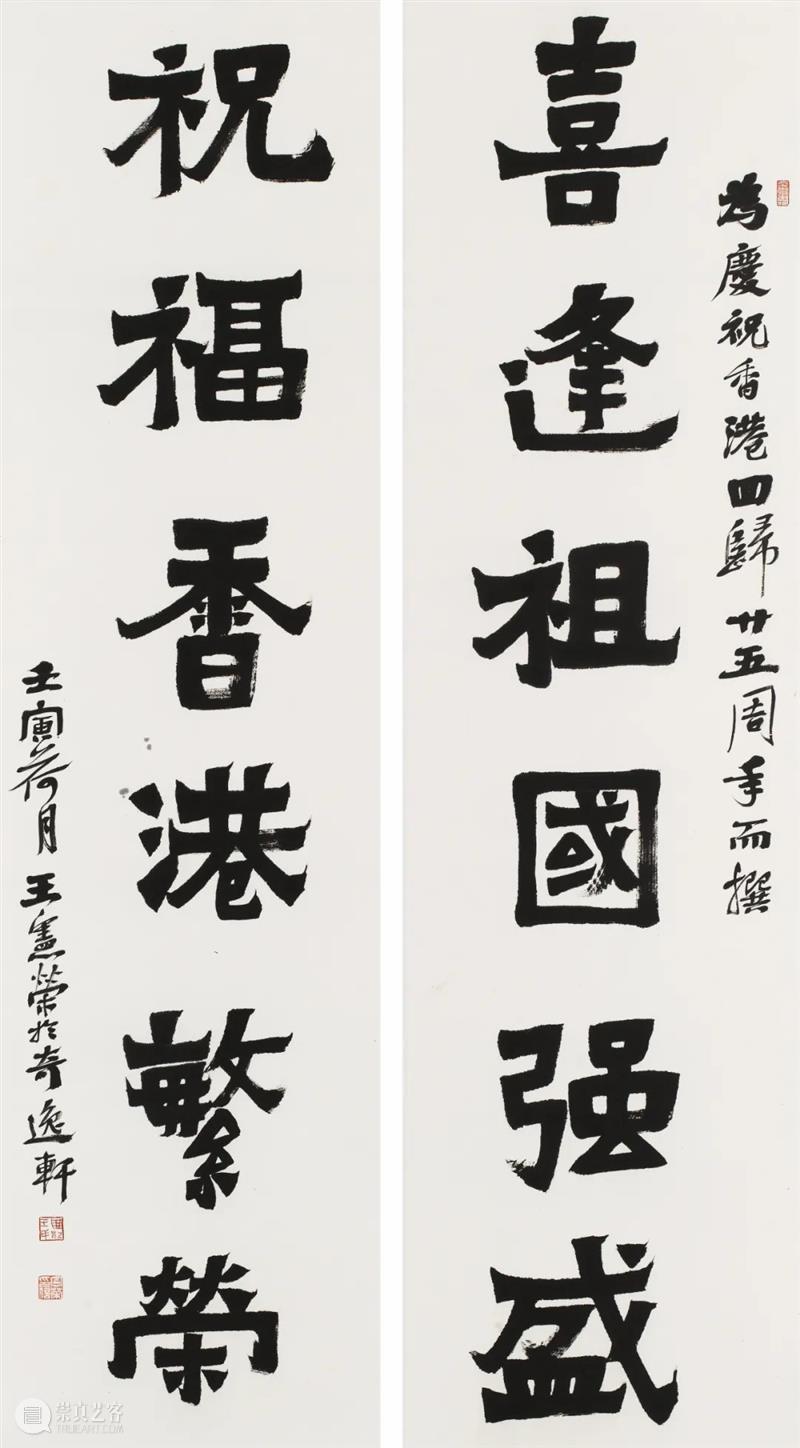 為慶祝香港回歸廿五周年而撰
喜逢祖國强盛
祝福香港繁榮
壬寅荷月王憲榮於奇逸軒
崇真艺客